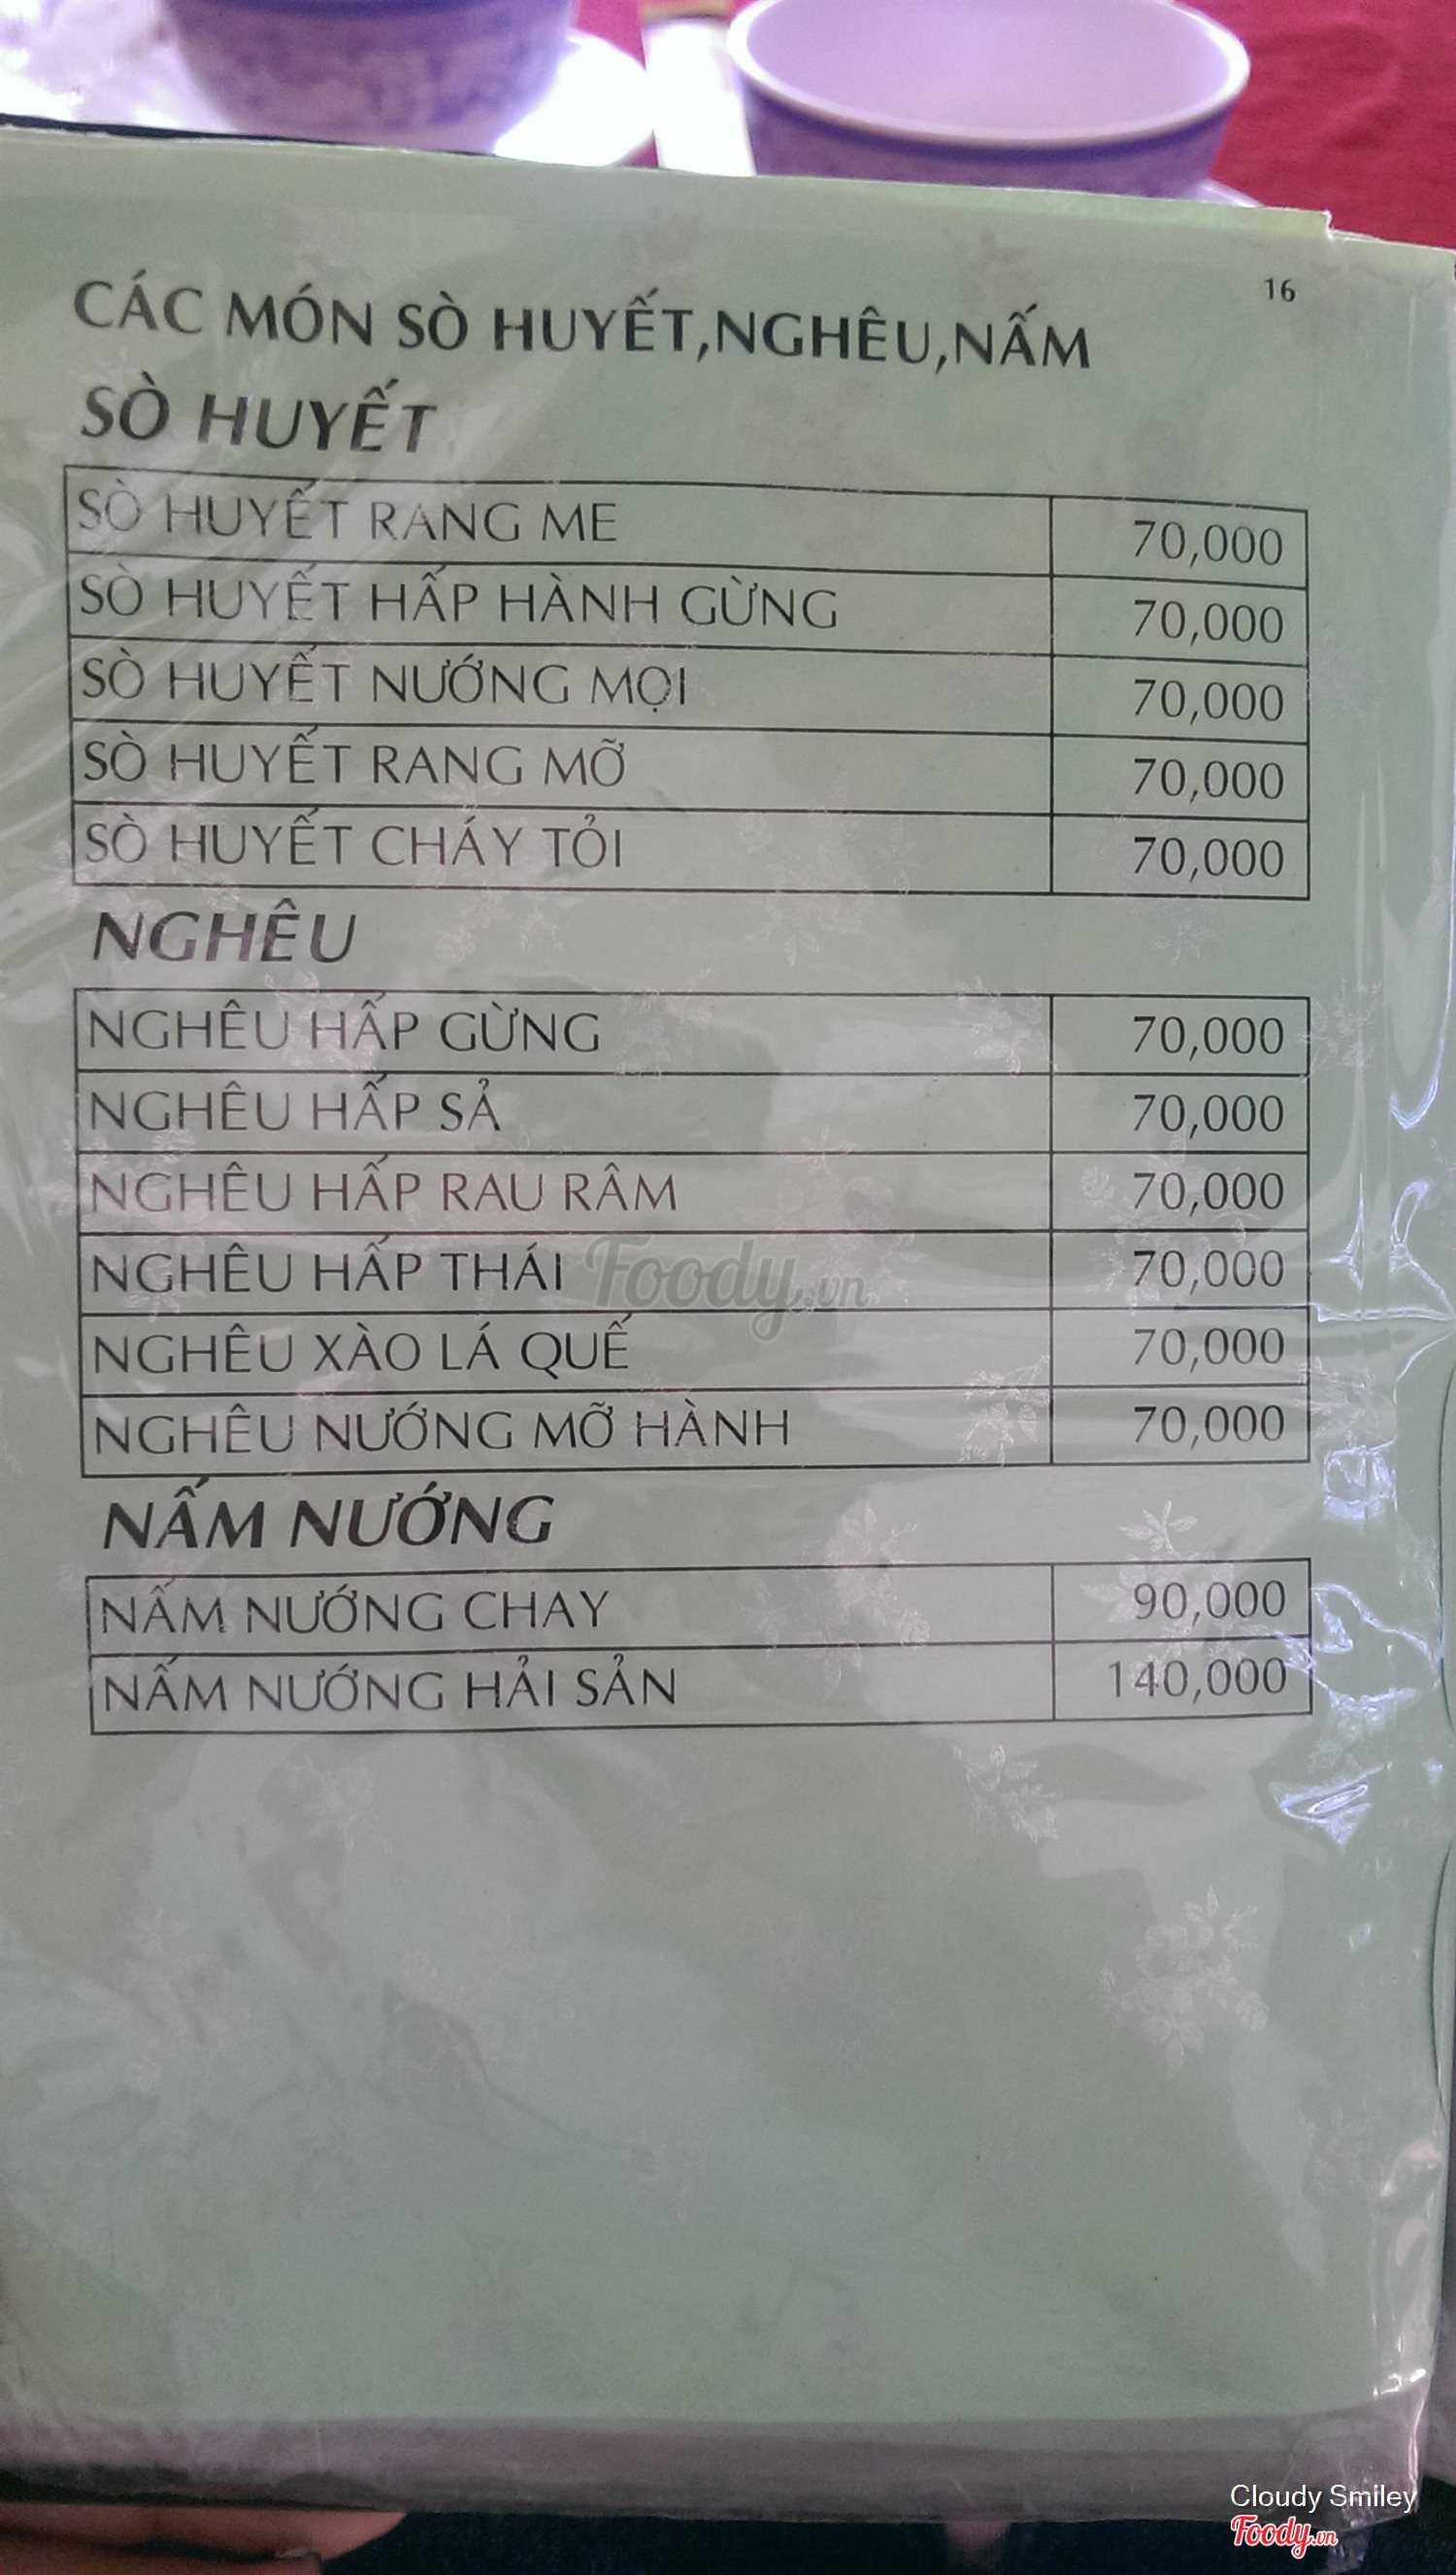 16
CÁC MÓN SÒ HUYẾT,NGHÊU,NẤM
SÒ HUYẾT
SÒ HUYẾT RANG ME 70,000
SÒ HUYẾT HẤP HÀNH GỪNG 70,000
SÒ HUYẾT NƯỚNG MỌI 70,000
SÒ HUYẾT RANG MỠ 70,000
SÒ HUYẾT CHÁY TỎI 70,000
NGHÊU
NGHÊU HẤP GỪNG 70,000
NGHÊU HẤP SẢ 70,000
NGHÊU HẤP RAU RÂM 70,000
NGHÊU HẤP THÁI 70,000
Foody.vn
NGHÊU XÀO LÁ QUẾ 70,000
NGHÊU NƯỚNG MỠ HÀNH 70,000
NẤM NƯỚNG
NẤM NƯỚNG CHAY 90,000
NẤM NƯỚNG HẢI SẢN 140,000
Cloudy Smiley
Foody.vn